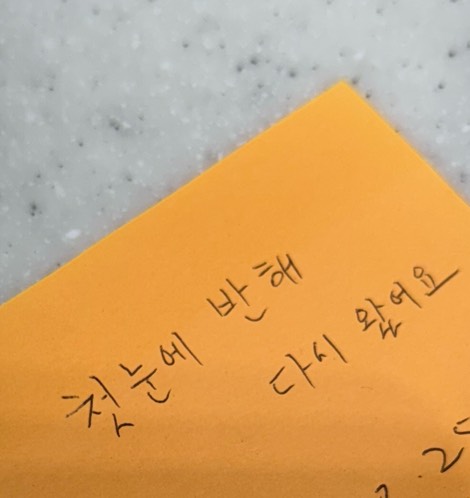 첫눈에 반해
다시 왔어요